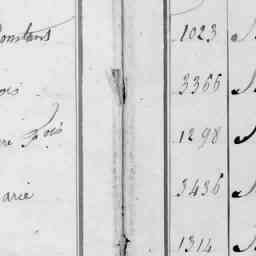 Constans 1023
ois 3366
re Fois 1298
arie 3436
1314